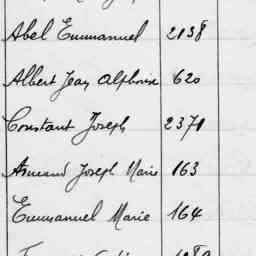 Abel Emmanuel 2138
Albert Jean Alphonse 620
Constant Joseph 2371
Armand Joseph Marie 163
Emmanuel Marie 164